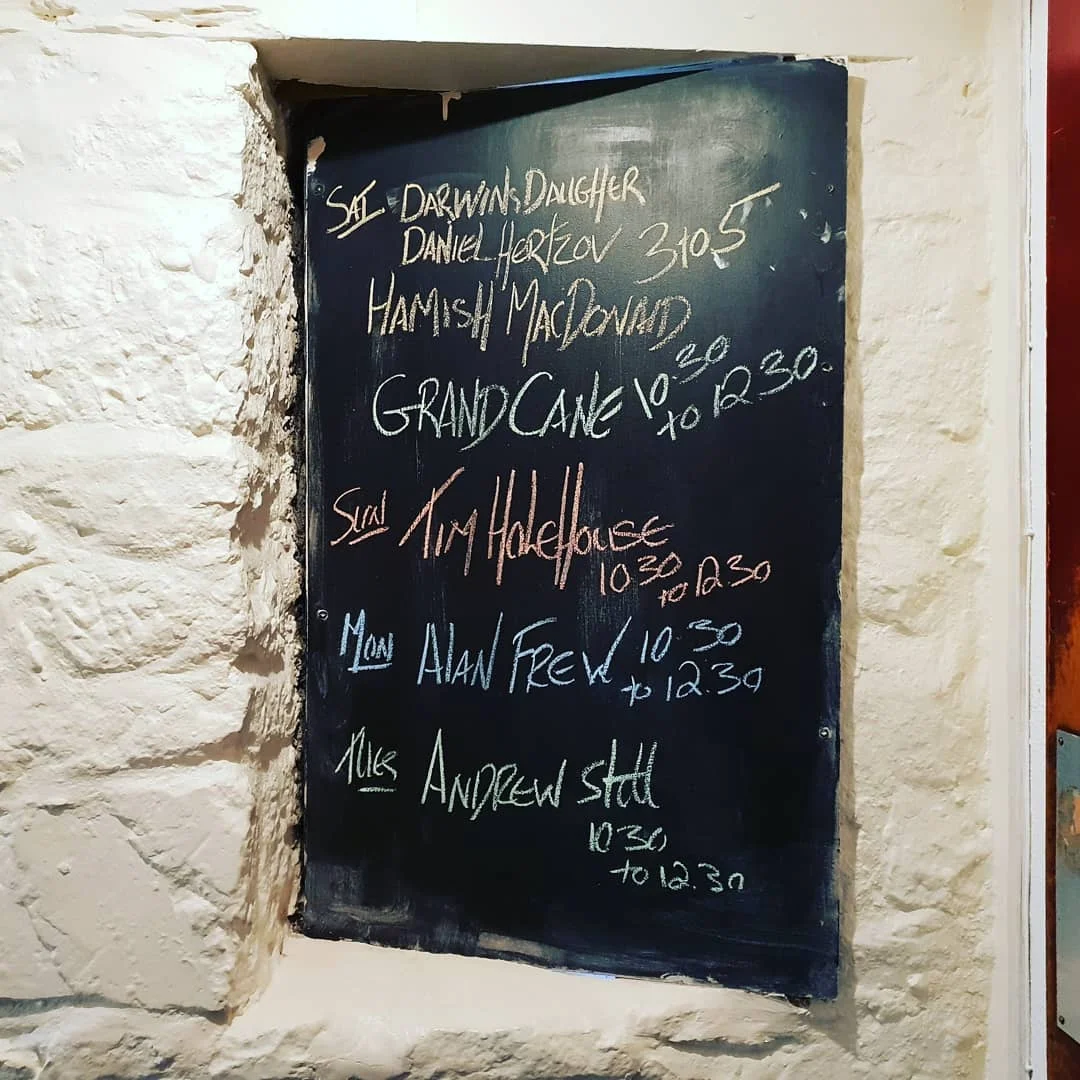 SAT DARWINS DAUGHER
DANIEL HERTZOV 3 to 5
HAMISH MACDONALD
GRAND CANE 10.30
to 12.30.
SUN TIM HOLEHOUSE
10 30
to 12 30
MON ALAN FREW 10.30
to 12.30
TUES ANDREW
10 30
to 12.30